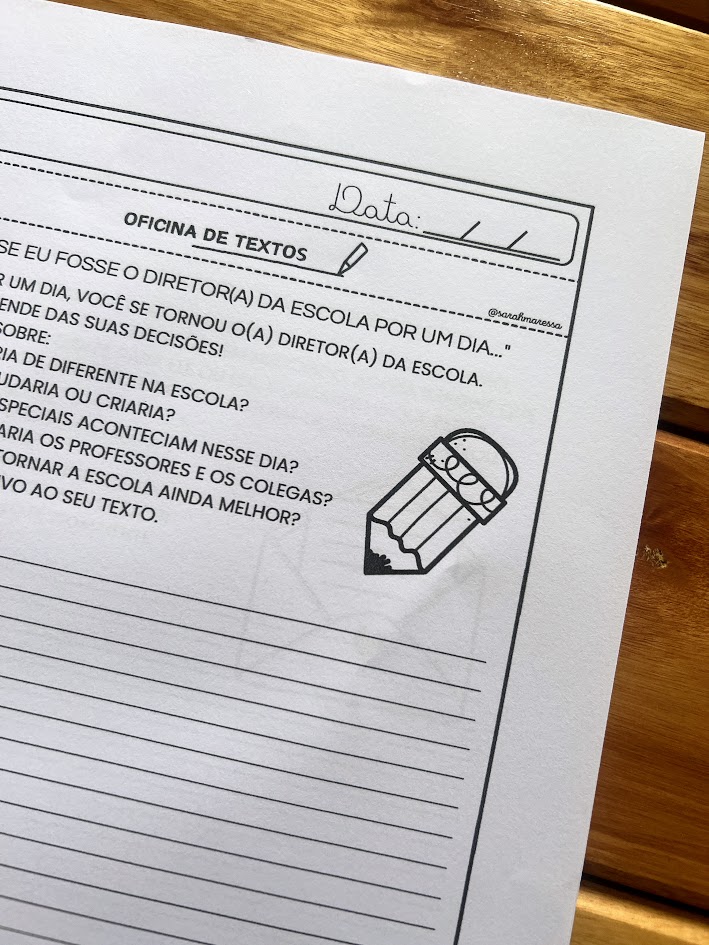 Data: / /
OFICINA DE TEXTOS
@sarahmaressa
SE EU FOSSE O DIRETOR(A) DA ESCOLA POR UM DIA..."
R UM DIA, VOCÊ SE TORNOU O(A) DIRETOR(A) DA ESCOLA.
ENDE DAS SUAS DECISÕES!
SOBRE:
RIA DE DIFERENTE NA ESCOLA?
UDARIA OU CRIARIA?
SPECIAIS ACONTECIAM NESSE DIA?
ARIA OS PROFESSORES E OS COLEGAS?
TORNAR A ESCOLA AINDA MELHOR?
VO AO SEU TEXTO.